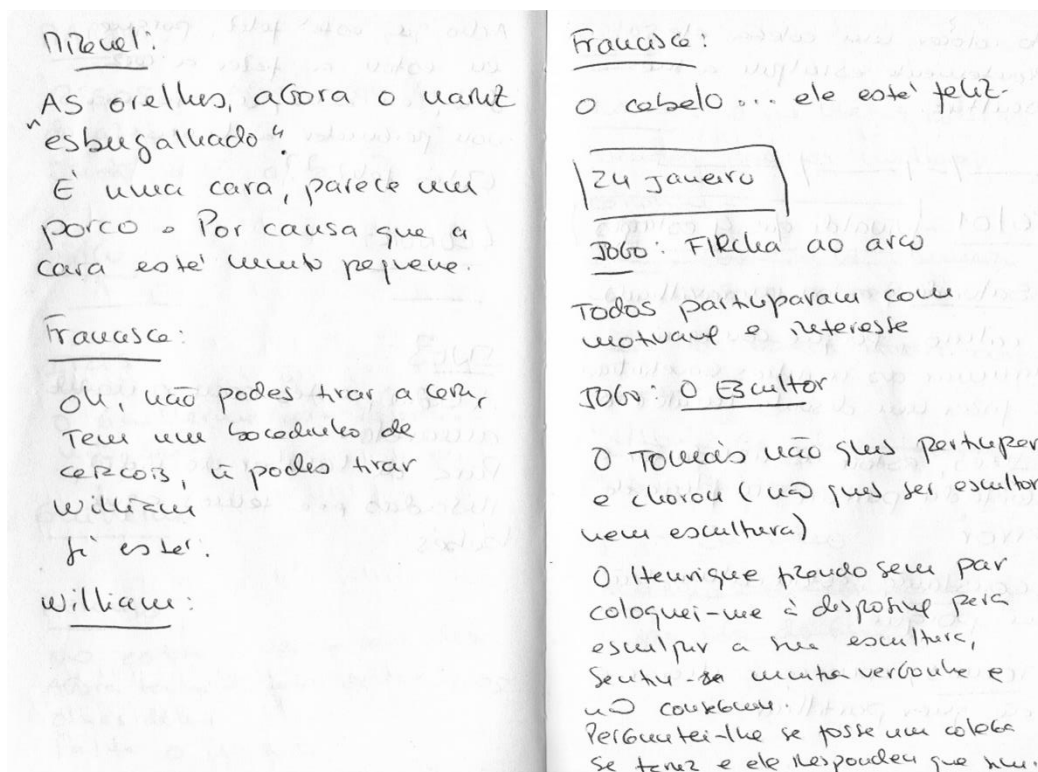 Miguel:
As orelhas, agora o nariz
"esbugalhado".
E uma cara, parece um
porco. Por causa que a
cara está muito pequena.
Francisca:
Oh, não podes tirar a
Tem um bocadinho de
, ñ podes tirar
William
Já está.
William:
Francisca:
O cabelo... ele está feliz.
24 Janeiro
Jogo: Flecha ao arco
Todos participaram com
motivação e interesse
Jogo: O Escultor
O Tomás não quis participar
e chorou (não quis ser escultor
nem escultura)
O Henrique ficando sem par
coloquei-me à disposição para
esculpir a sua escultura,
Sentiu-se muita vergonha e
não conseguiu.
Perguntei-lhe se fosse um colega
se fazia e ele respondeu que sim.